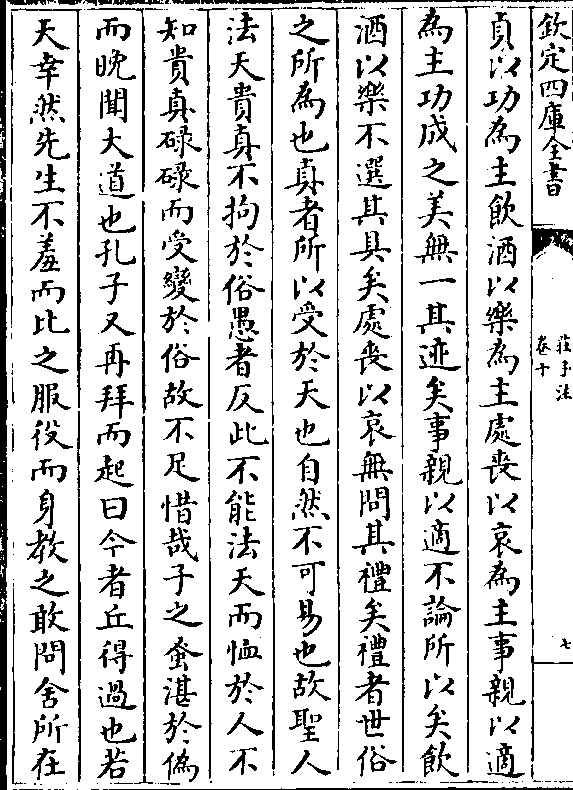 欽定四庫全書
莊子注
卷十
七
貞以功為主飲酒以樂為主處喪以哀為主事親以適
為主功成之美無一其迹矣事親以適不論所以矣飲
酒以樂不選其具矣處喪以哀無問其禮矣禮者世俗
之所為也真者所以受於天也自然不可易也故聖人
法天貴真不拘於俗愚者反此不能法天而恤於人不
知貴真碌碌而受變於俗故不足惜哉子之蚤湛於偽
而晚聞大道也孔子又再拜而起曰今者丘得過也若
天幸然先生不羞而比之服役而身教之敢問舍所在